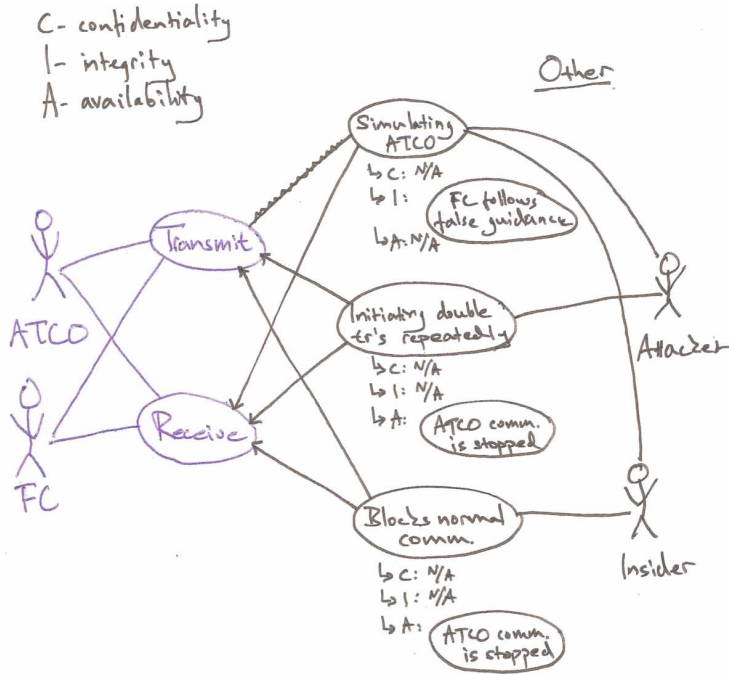 C- confidentiality
I- integrity
A- availability
Other
Simulating
ATCO
↳ C: N/A
↳ I:
FC follows
false guidance
↳ A: N/A
Transmit
ATCO
Initiating double
tr's repeatedly
Attacker
↳ C: N/A
↳ I: N/A
↳ A:
ATCO comm.
is stopped
Receive
FC
Blocks normal
comm.
Insider
↳ C: N/A
↳ I: N/A
↳ A:
ATCO comm.
is stopped